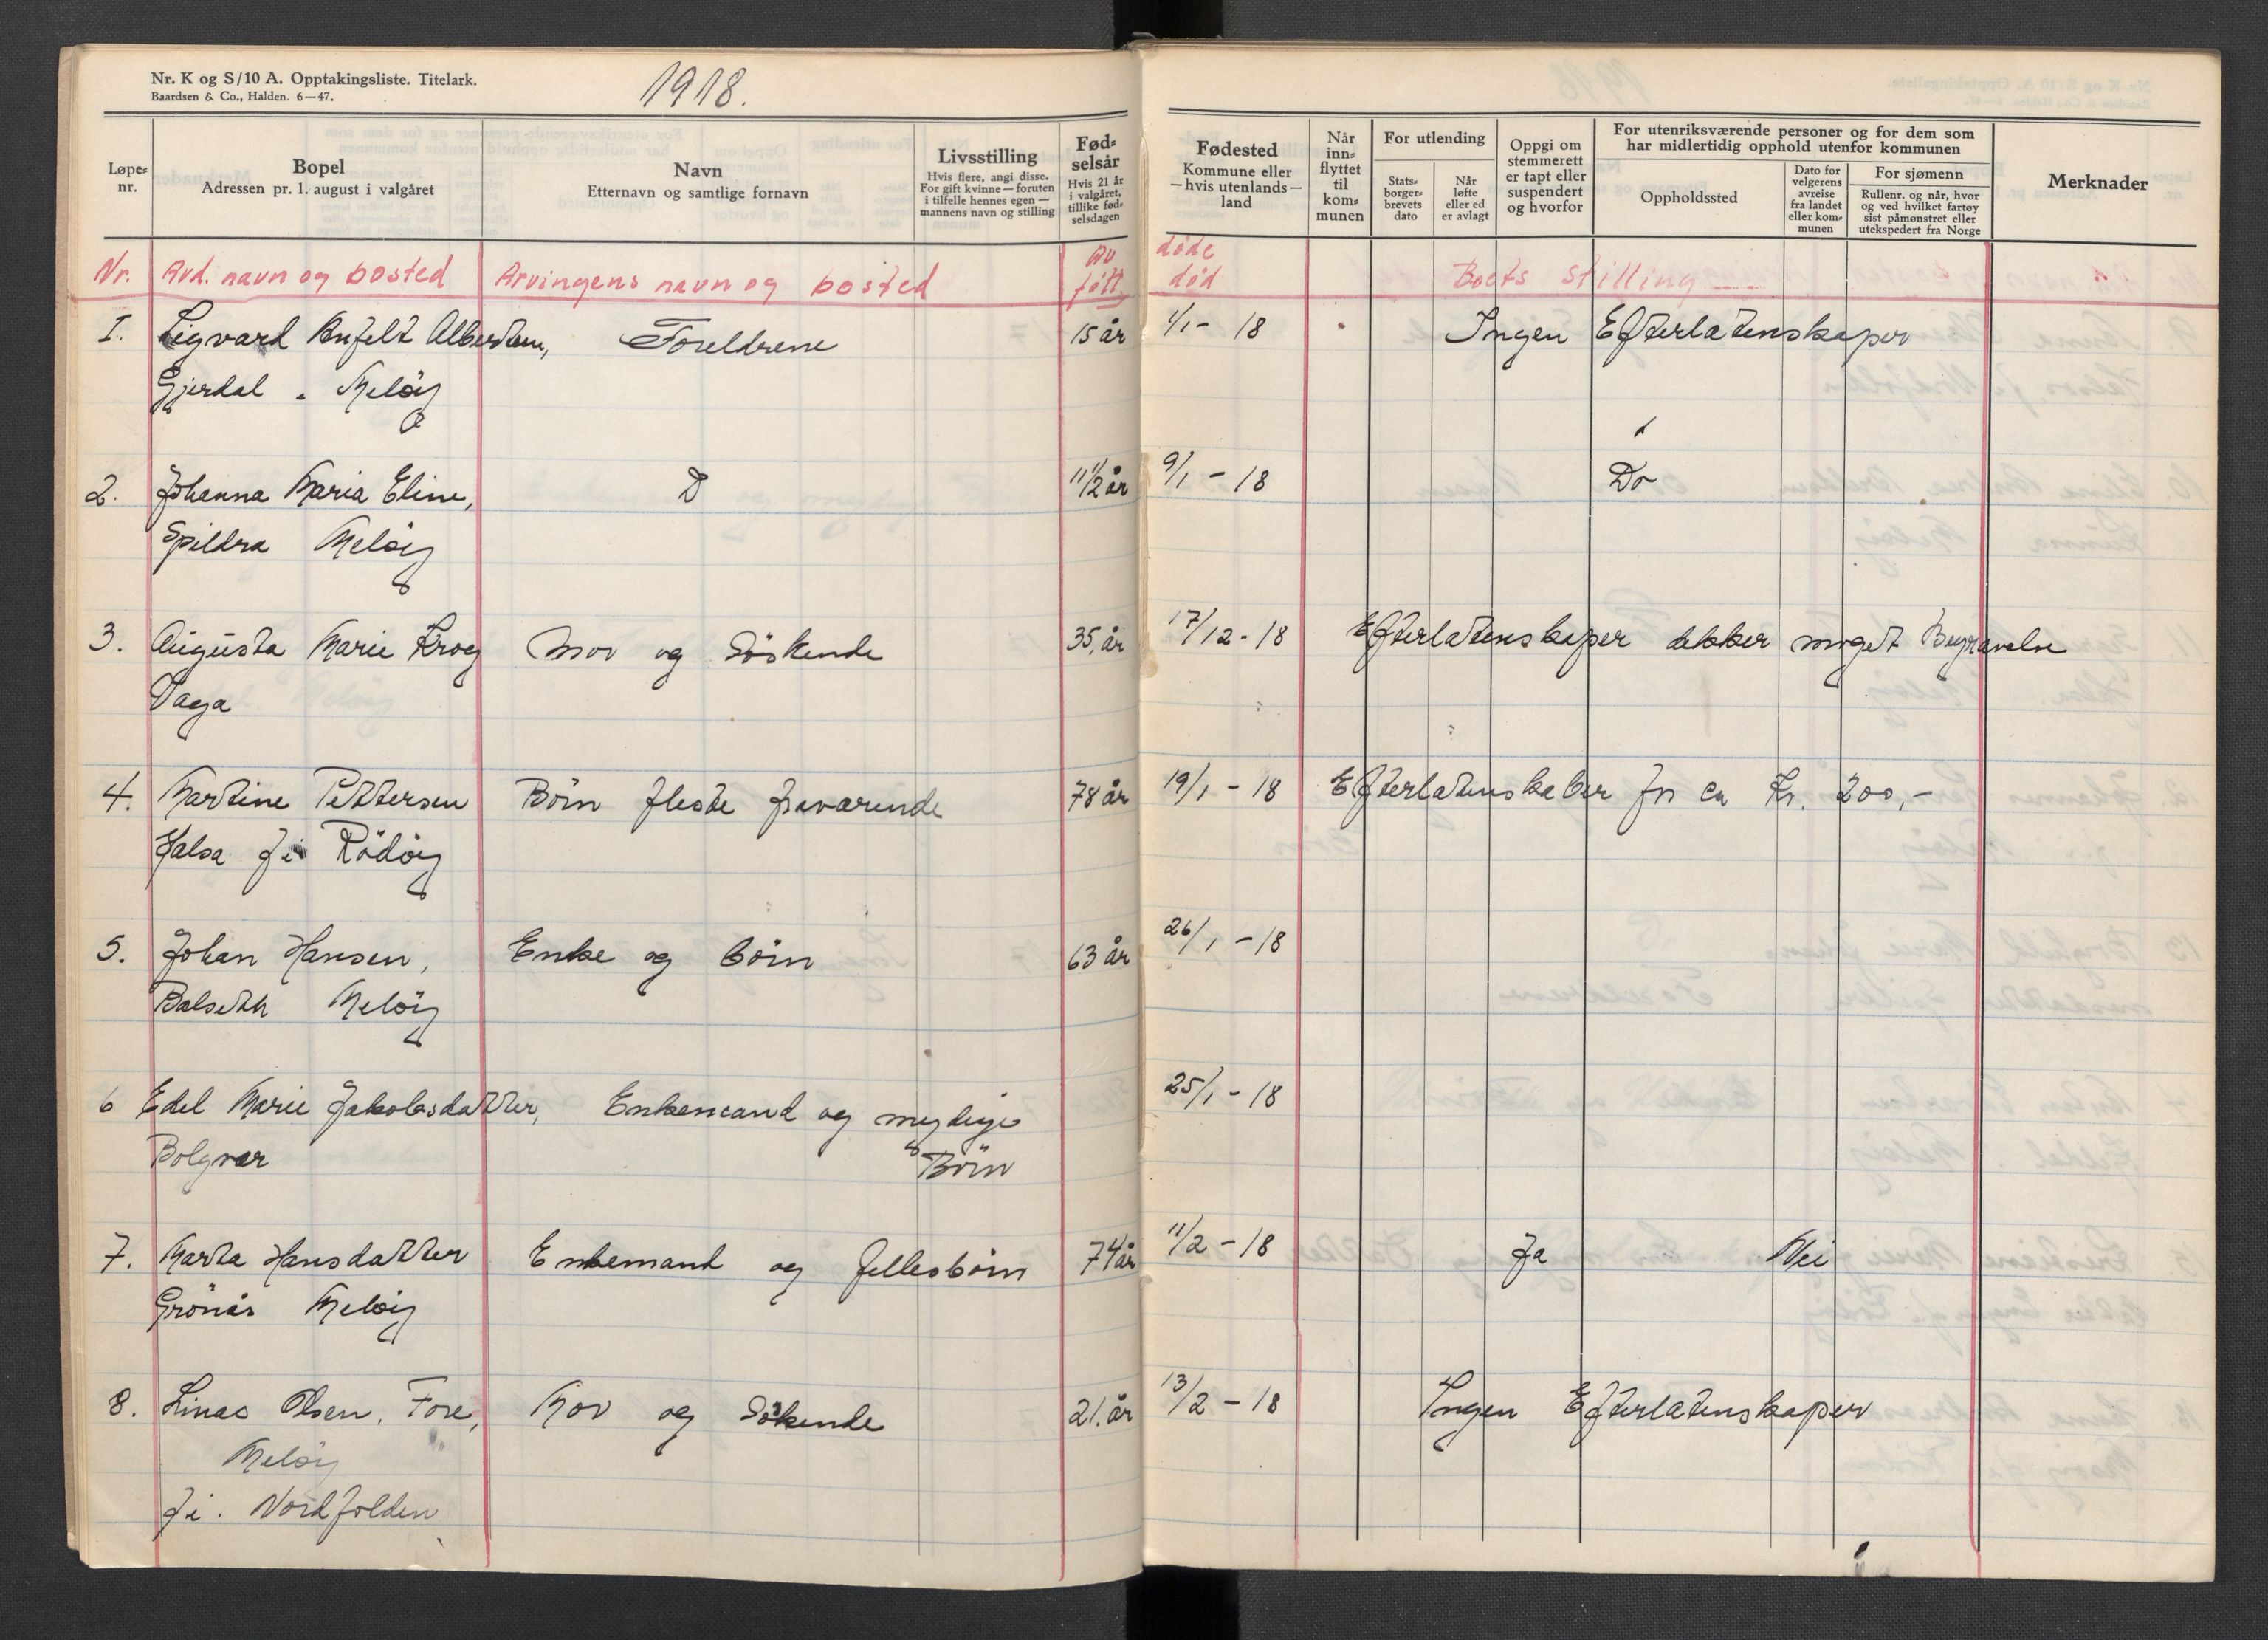 Nr. K og S/10 A. Opptakingsliste. Titelark.
Baardsen & Co., Halden. 6—47.
1918.
Løpe-
nr.
Bopel
Adressen pr. 1. august i valgåret
Navn
Etternavn og samtlige fornavn
Livsstilling
Hvis flere, angi disse.
For gift kvinne — foruten
i tilfelle hennes egen —
mannens navn og stilling
Fød-
selsår
Hvis 21 år
i valgåret,
tillike fød-
selsdagen
Fødested
Kommune eller
— hvis utenlands —
land
Når
inn-
flyttet
til
kom-
munen
For utlending
Stats-
borger-
brevets
dato
Når
løfte
eller ed
er avlagt
Oppgi om
stemmerett
er tapt eller
suspendert
og hvorfor
For utenriksværende personer og for dem som
har midlertidig opphold utenfor kommunen
Oppholdssted
Dato for
velgerens
avreise
fra landet
eller kom-
munen
For sjømenn
Rullenr. og når, hvor
og ved hvilket fartøy
sist påmønstret eller
utekspedert fra Norge
Merknader
Av døde
Nr. Avd. navn og bosted Arvingens navn og bosted født død Boets stilling
I. Sigvard Anfelt Albertsen, Foreldrene 15 år 4/1 - 18 Ingen Efterlatenskaper
Gjerdal. Meløy
2. Johanna Maria Eline, D 11 1/2 år 9/1 - 18 Do
Spildra Meløy
3. Augusta Marie Kroeg Mor og Söskende 35, år 17/12 - 18 Efterlatenskaper dekker noget Begravelse
Vaga
4. Martine Pettersen Börn fleste fraværende 78 år 19/1 - 18 Efterlatenskaber for ca Kr. 200,-
Halsa f i Rödöy
5. Johan Hansen, Enke og börn 63 år 26/1 - 18
Balseth Meløy
6 Edel Marie Jakobsdatter, Enkemand og myndige 25/1 - 18
Bolgvær Börn
7. Marta Hansdatter Enkemand og fellesbörn 74 år 11/2 - 18 Ja Nei
Grönås Meløy
8. Linas Olsen. Fore, Mor og Sökende 21. år 13/2 - 18 Ingen Efterlatenskaper
Meløy
f i. Nordfolden